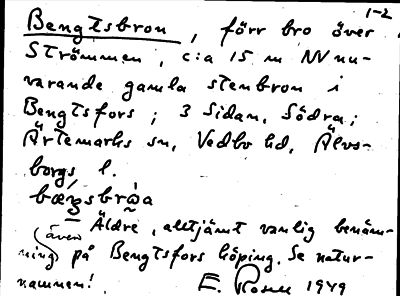 1-2
Bengtsbron, förr bro över
Strömmen, c:a 15 m NV nu-
varande gamla stenbron i
Bengtsfors; 3 Sidan, Södra;
Ärtemarks sn, Vedbo hd, Älvs-
borgs l.
Äldre, alltjämt vanlig benäm-
även
ning på Bengtsfors köping. Se natur-
namnen! E. Rosell 1949